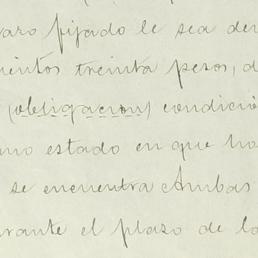 varo fijado le sea der
mientos treinta pesos, d
(obligacion) condició
mo estado en que ho
se encuentra Ambas
urante el plazo de lo